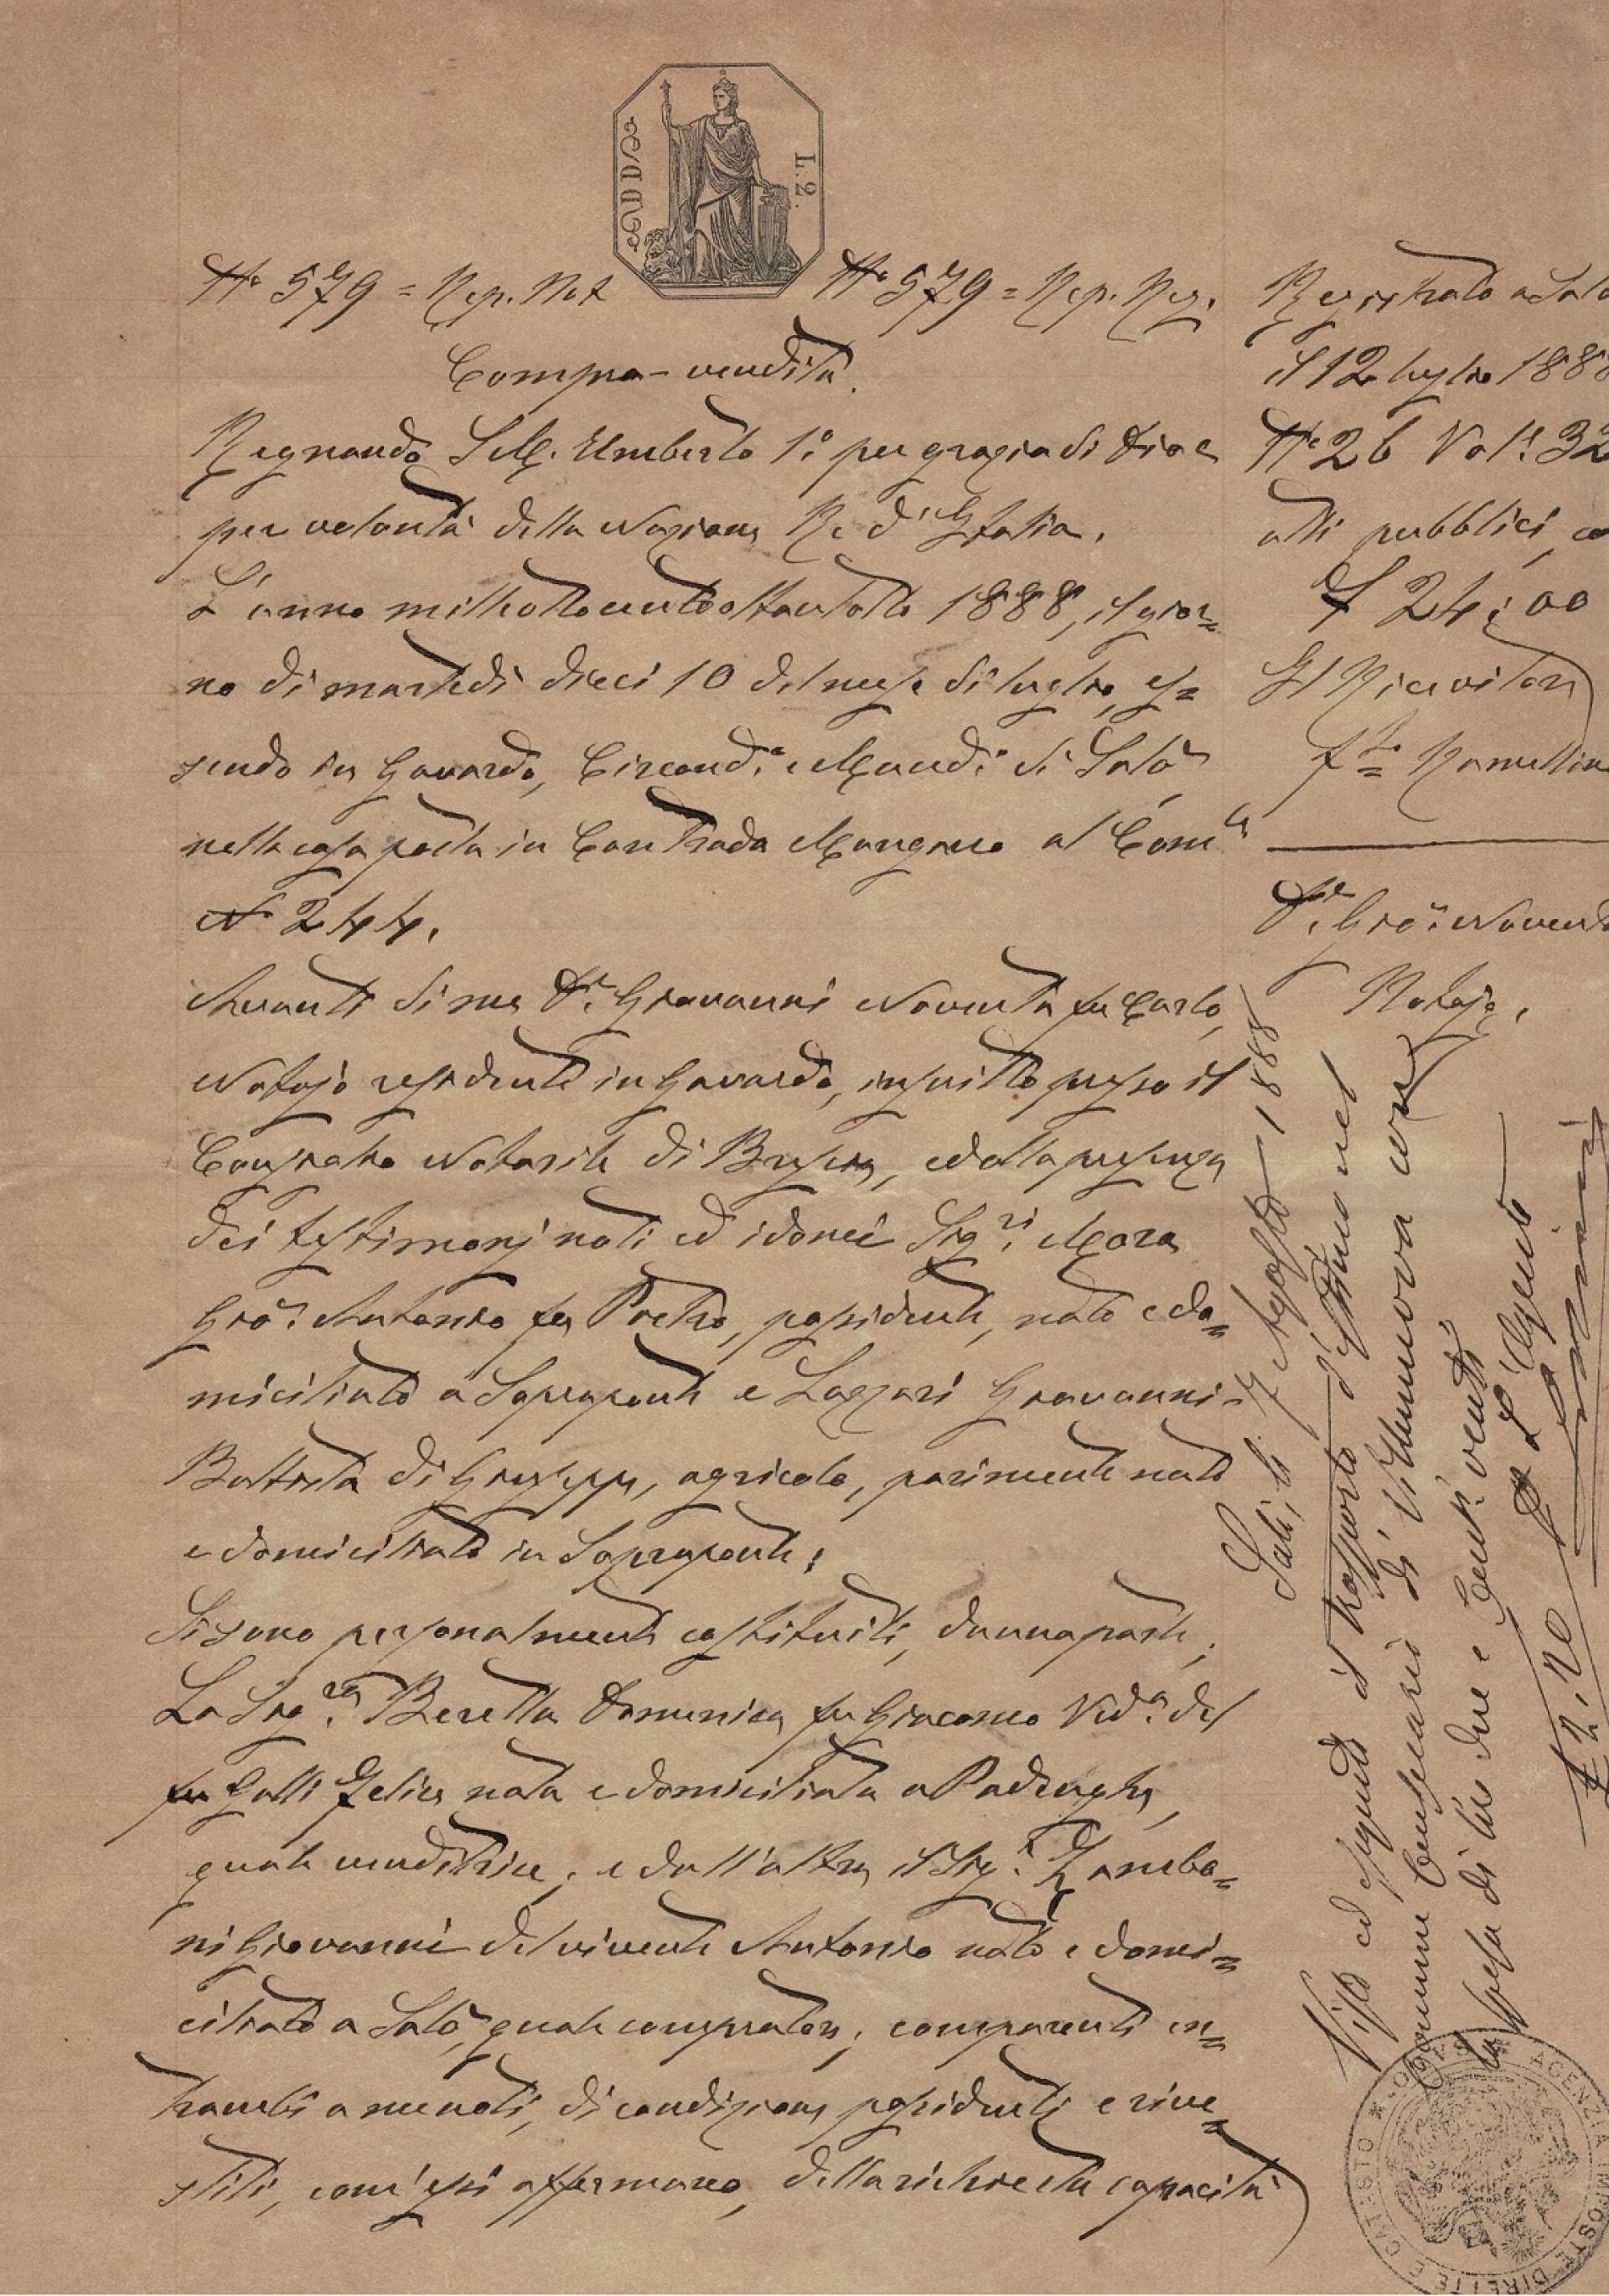 L. 2.
N° 579 = Rep. Not
N° 579 = Rep. Reg.
Compra-vendita.
Regnando S. M. Umberto 1° per grazia di Dio e
per volontà della Nazione Re d'Italia.
L'anno milleottocentottantotto 1888, il gior=
no di martedì dieci 10 del mese di luglio, es=
sendo in Gavardo, Circond.° e Mand.° di Salò
nella casa posta in Contrada Mangano al Com.le
N° 244.
Avanti di me Dr. Giovanni Noventa fu Carlo,
Notajo residente in Gavardo, inscritto presso il
Consiglio Notarile di Brescia, ed alla presenza
dei testimonj noti ed idonei Sig.ri Mora
Gio: Antonio fu Pietro, possidente, nato e do=
miciliato a Sopraponte e Lazzari Giovanni-
Battista di Giuseppe, agricolo, parimente nato
e domiciliato in Sopraponte;
Si sono personalmente costituiti, da una parte,
La Sig.ra Beretta Domenica fu Giacomo Ved.a del
fu Galli Felice nata e domiciliata a Padenghe,
quale venditrice; e dall'altra il Sig.r Zambo=
ni Giovanni del vivente Antonio nato e domi=
ciliato a Salò, quale compratore; comparenti en=
trambi a me noti, di condizione possidenti e rive=
stiti, com'essi affermano, della richiesta capacità
Registrato a Salò
il 12 luglio 1888
N° 26 Vol. 32
atti pubblici, co
£ 24:00
Il Ricevitore
f.to
Dr. Gio: Noventa
Notajo.
Salò, li 7 Agosto 1888
Visto ed eseguito il trasporto d'estimo nel
Comune Censuario di Villanuova con
la spesa di lire due e Cent.i venti
£ 2.20
L'Agente
AGENZIA IMPOSTE DIRETTE E CATASTO